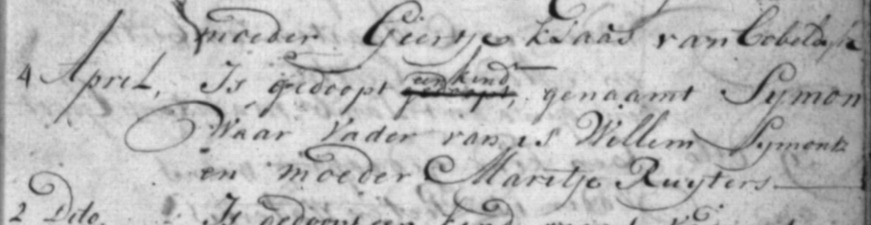 moeder Geertje Klaas van
4 April, Is gedoopt een kind, genaamt Symon
Waar Vader van is Willem Symontz
en moeder Maritje Ruyters
2 Dito, Is gedoopt een kind